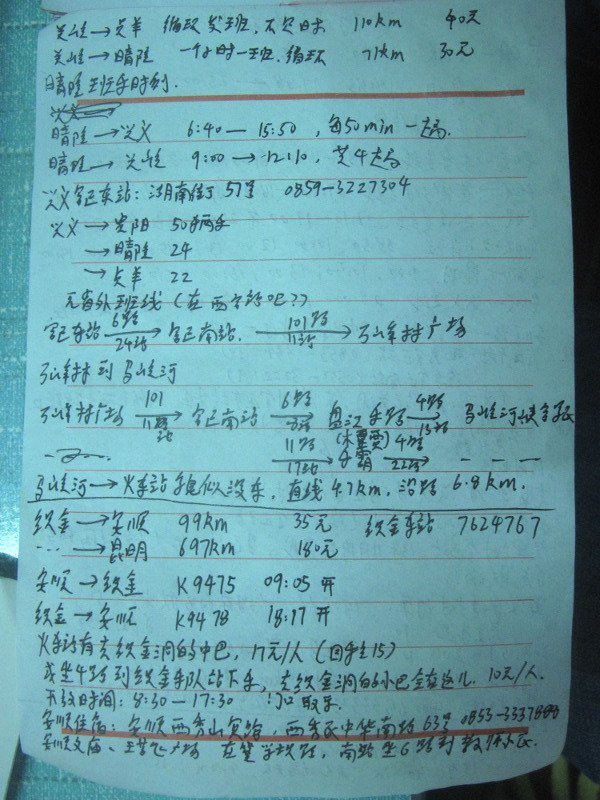 关岭→贞丰 循环发班,不定时 110km 40元
关岭→晴隆 一个小时一班,循环 71km 30元
晴隆班车时刻.
兴义
晴隆→兴义 6:40—15:50,每50min一趟.
晴隆→关岭 9:00→12:10,共4趟
兴义客运东站:湖南街 57号 0859-3227304
兴义→贵阳 50多两车
→晴隆 24
→贞丰 22
无省外班线(在西客站吧??)
客运东站 6路 24站 → 客运南站 101路 11站 → 万峰林广场
万峰林到马岭河
万峰林广场 101 11站 → 客运南站 6路 8站 → 盘江手路 4路 13站 → 马岭河峡谷
11路 17站 → (木贾) 4路 22站 → — — —
马岭河→火车站 貌似没车,直线4.7km,沿路6.8km.
织金→安顺 99km 35元 织金车站 7624767
…→昆明 697km 180元
安顺→织金 K9475 09:05开
织金→安顺 K9478 18:17开
火车站有去织金洞的中巴,17元/人(回来是15)
或坐4路到织金车队站下车,去织金洞的小巴全在这儿.10元/人.
开放时间:8:30—17:30 门口取票.
安顺住宿:安顺西秀山宾馆,西秀区中华南路63号 0853-
安顺文庙、王若飞广场 在 学坝路,南站坐6路到